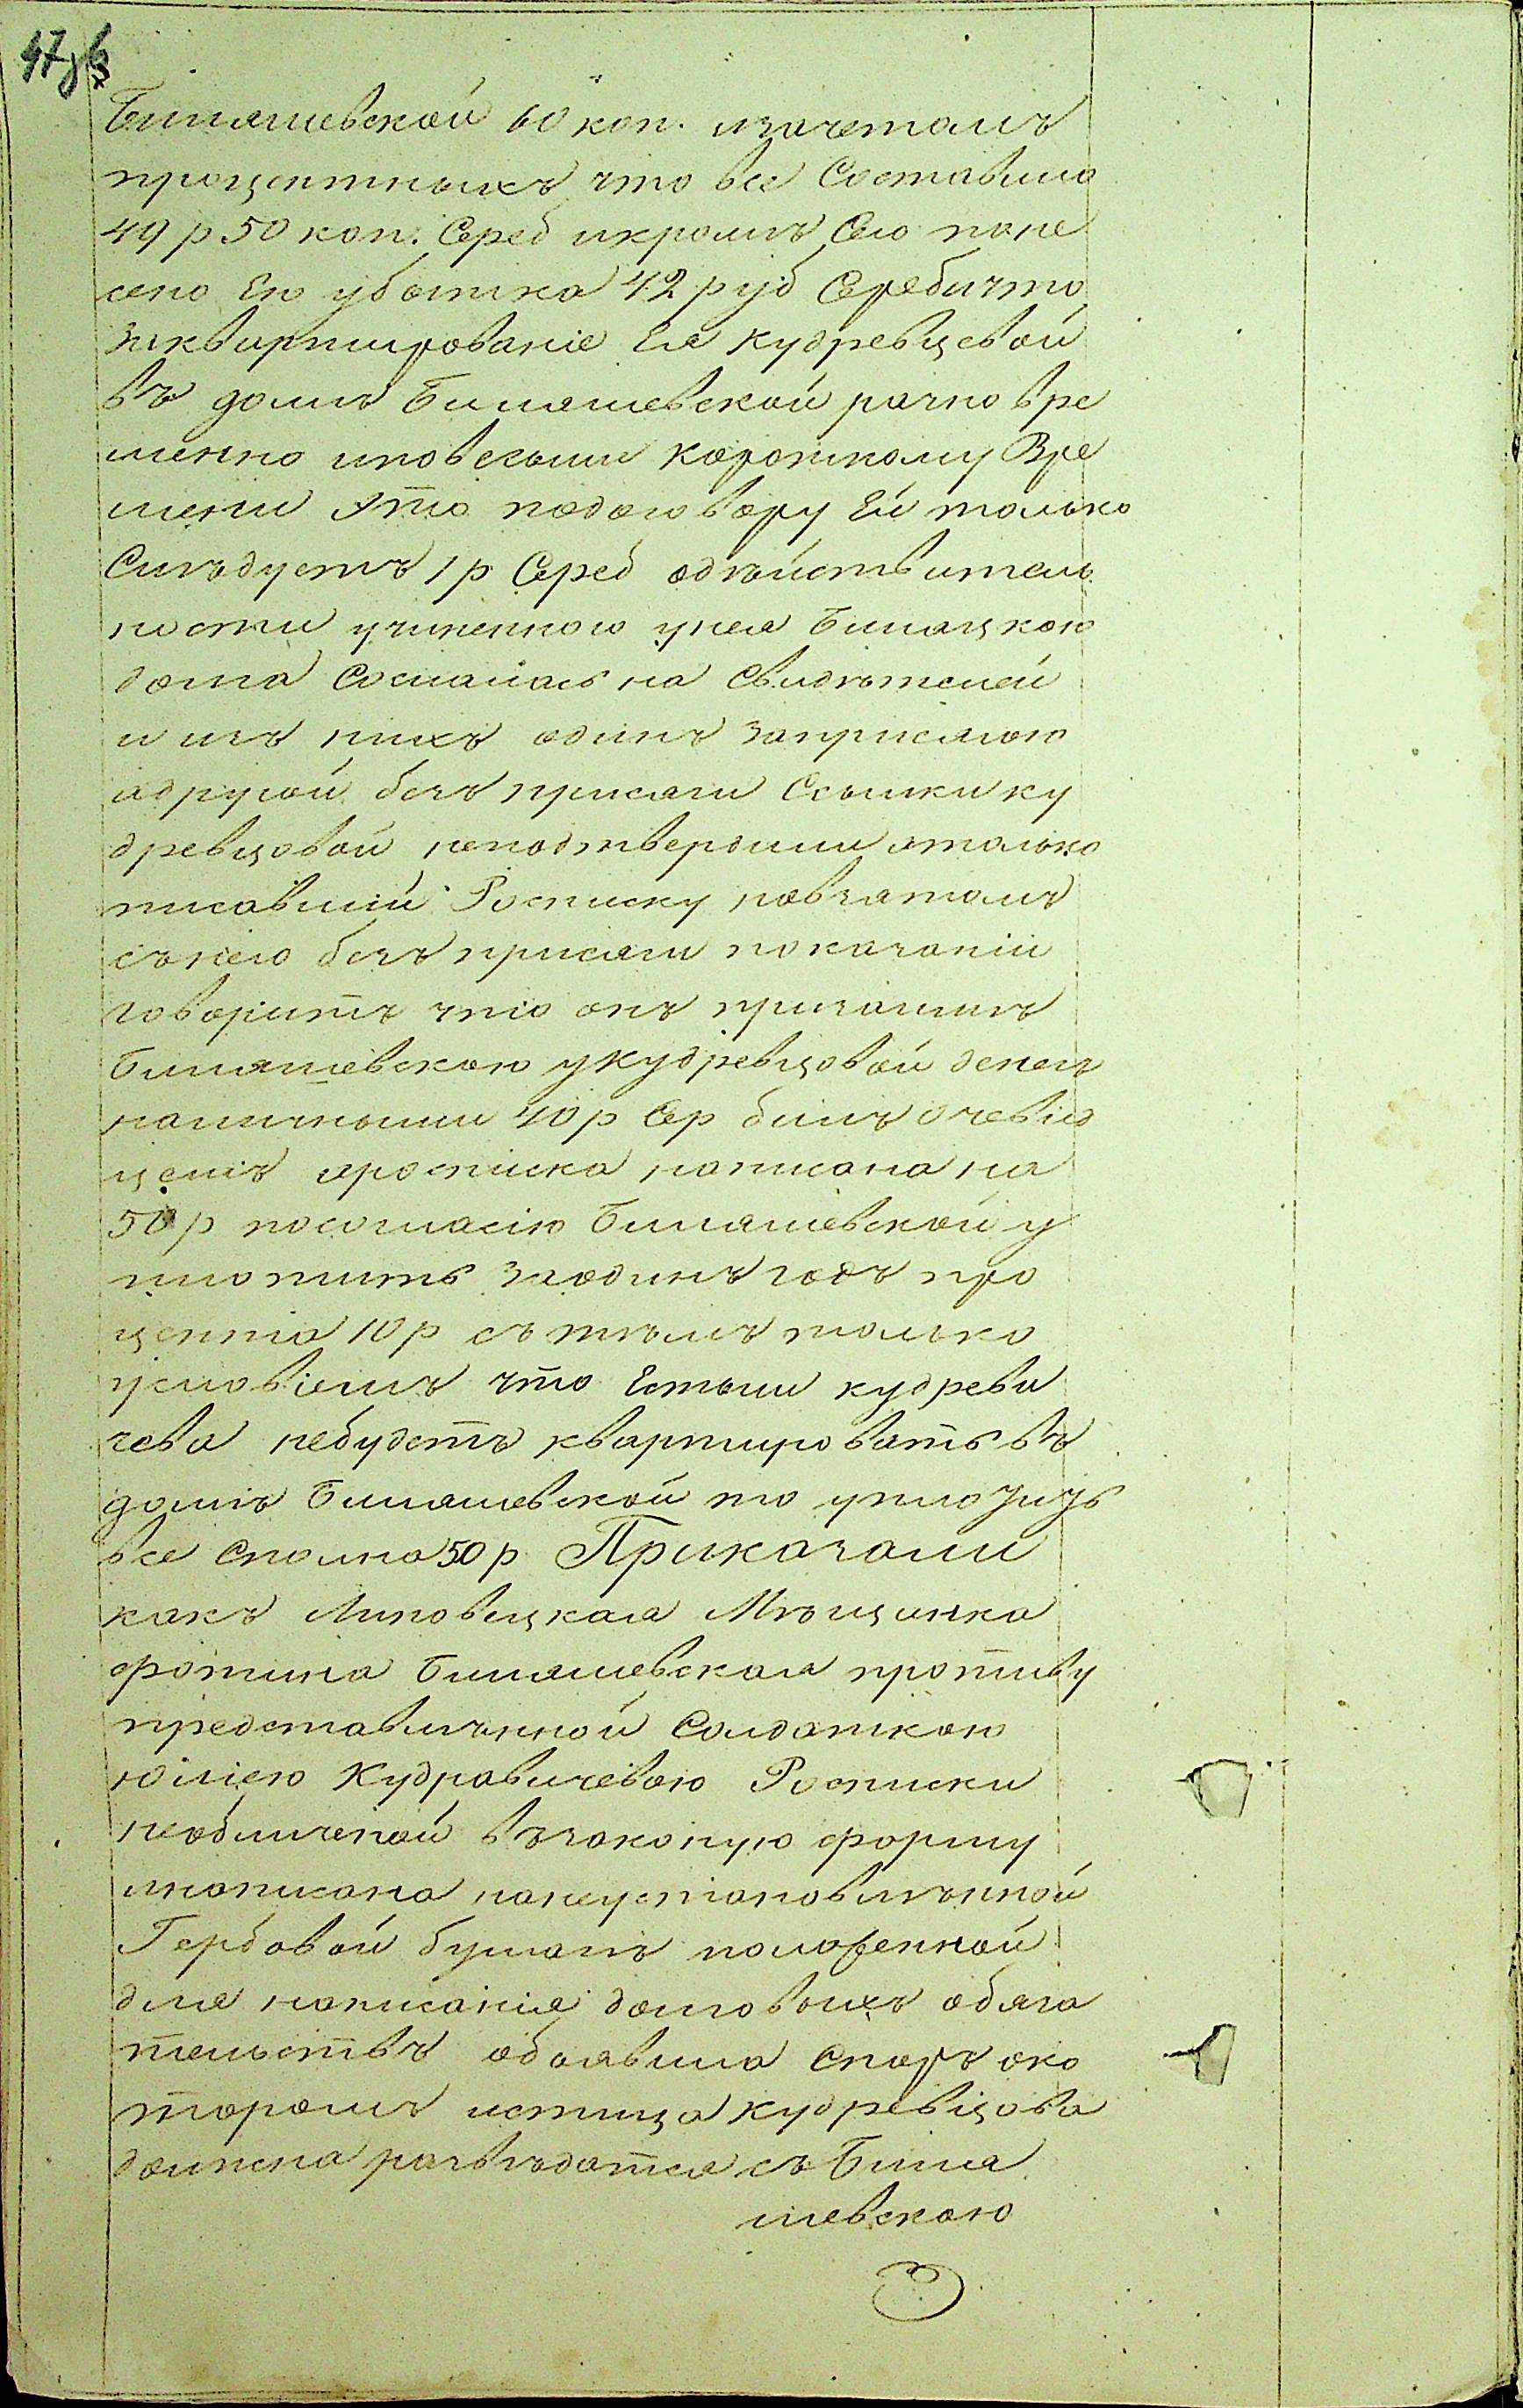 47 зв
Билянсевской 60 коп. изачетомъ
процентныхъ что все Составило
49 р 50 коп. Сереб икромѣ Сего поне
сено Ею убытка 42 руб Серебичто
заквартированіе Ея кудревцевой
въ домѣ Билянсевской разновре
менно иповесьми короткому Вре
мени Что подоговору Ей только
Слѣдуетъ 1 р Сереб одѣйствитель
ности учиненного унея Билацкою
долга Сослалась на Свидѣтелей
и изъ нихъ одинъ заприсягою
идругой безъ присяги Ссылки ку
древцовой неподтвердили итолько
писавшій Росписку повзятомъ
сънего безъ присяги показаніи
говоритъ что онъ призаимѣ
Билянсевскою укудревцовой денегъ
наличными 40 р Сер билъ очевид
цемъ аросписка написана на
50 р посогласію Билянсевской у
плотить заодинъ годъ про
цента 10 р съ тѣмъ только
условіемъ что Естьли кудреви
чева небудетъ квартировать въ
домѣ Билянсевской то уплотить
все Сполна 50 р Приказали
какъ Липовецкая Мѣщанка
фотина Билянсевская противу
представлѣнной Солдаткою
юліею Кудравичевою Росписки
необличеной възаконую форму
инаписана нанеустановлѣнной
Гербовой бумагѣ положенной
для написанія долговыхъ обяза
тельствъ объявила Споръ око
торомъ истица кудревцова
должна развѣдатся съ Биля
шевскою